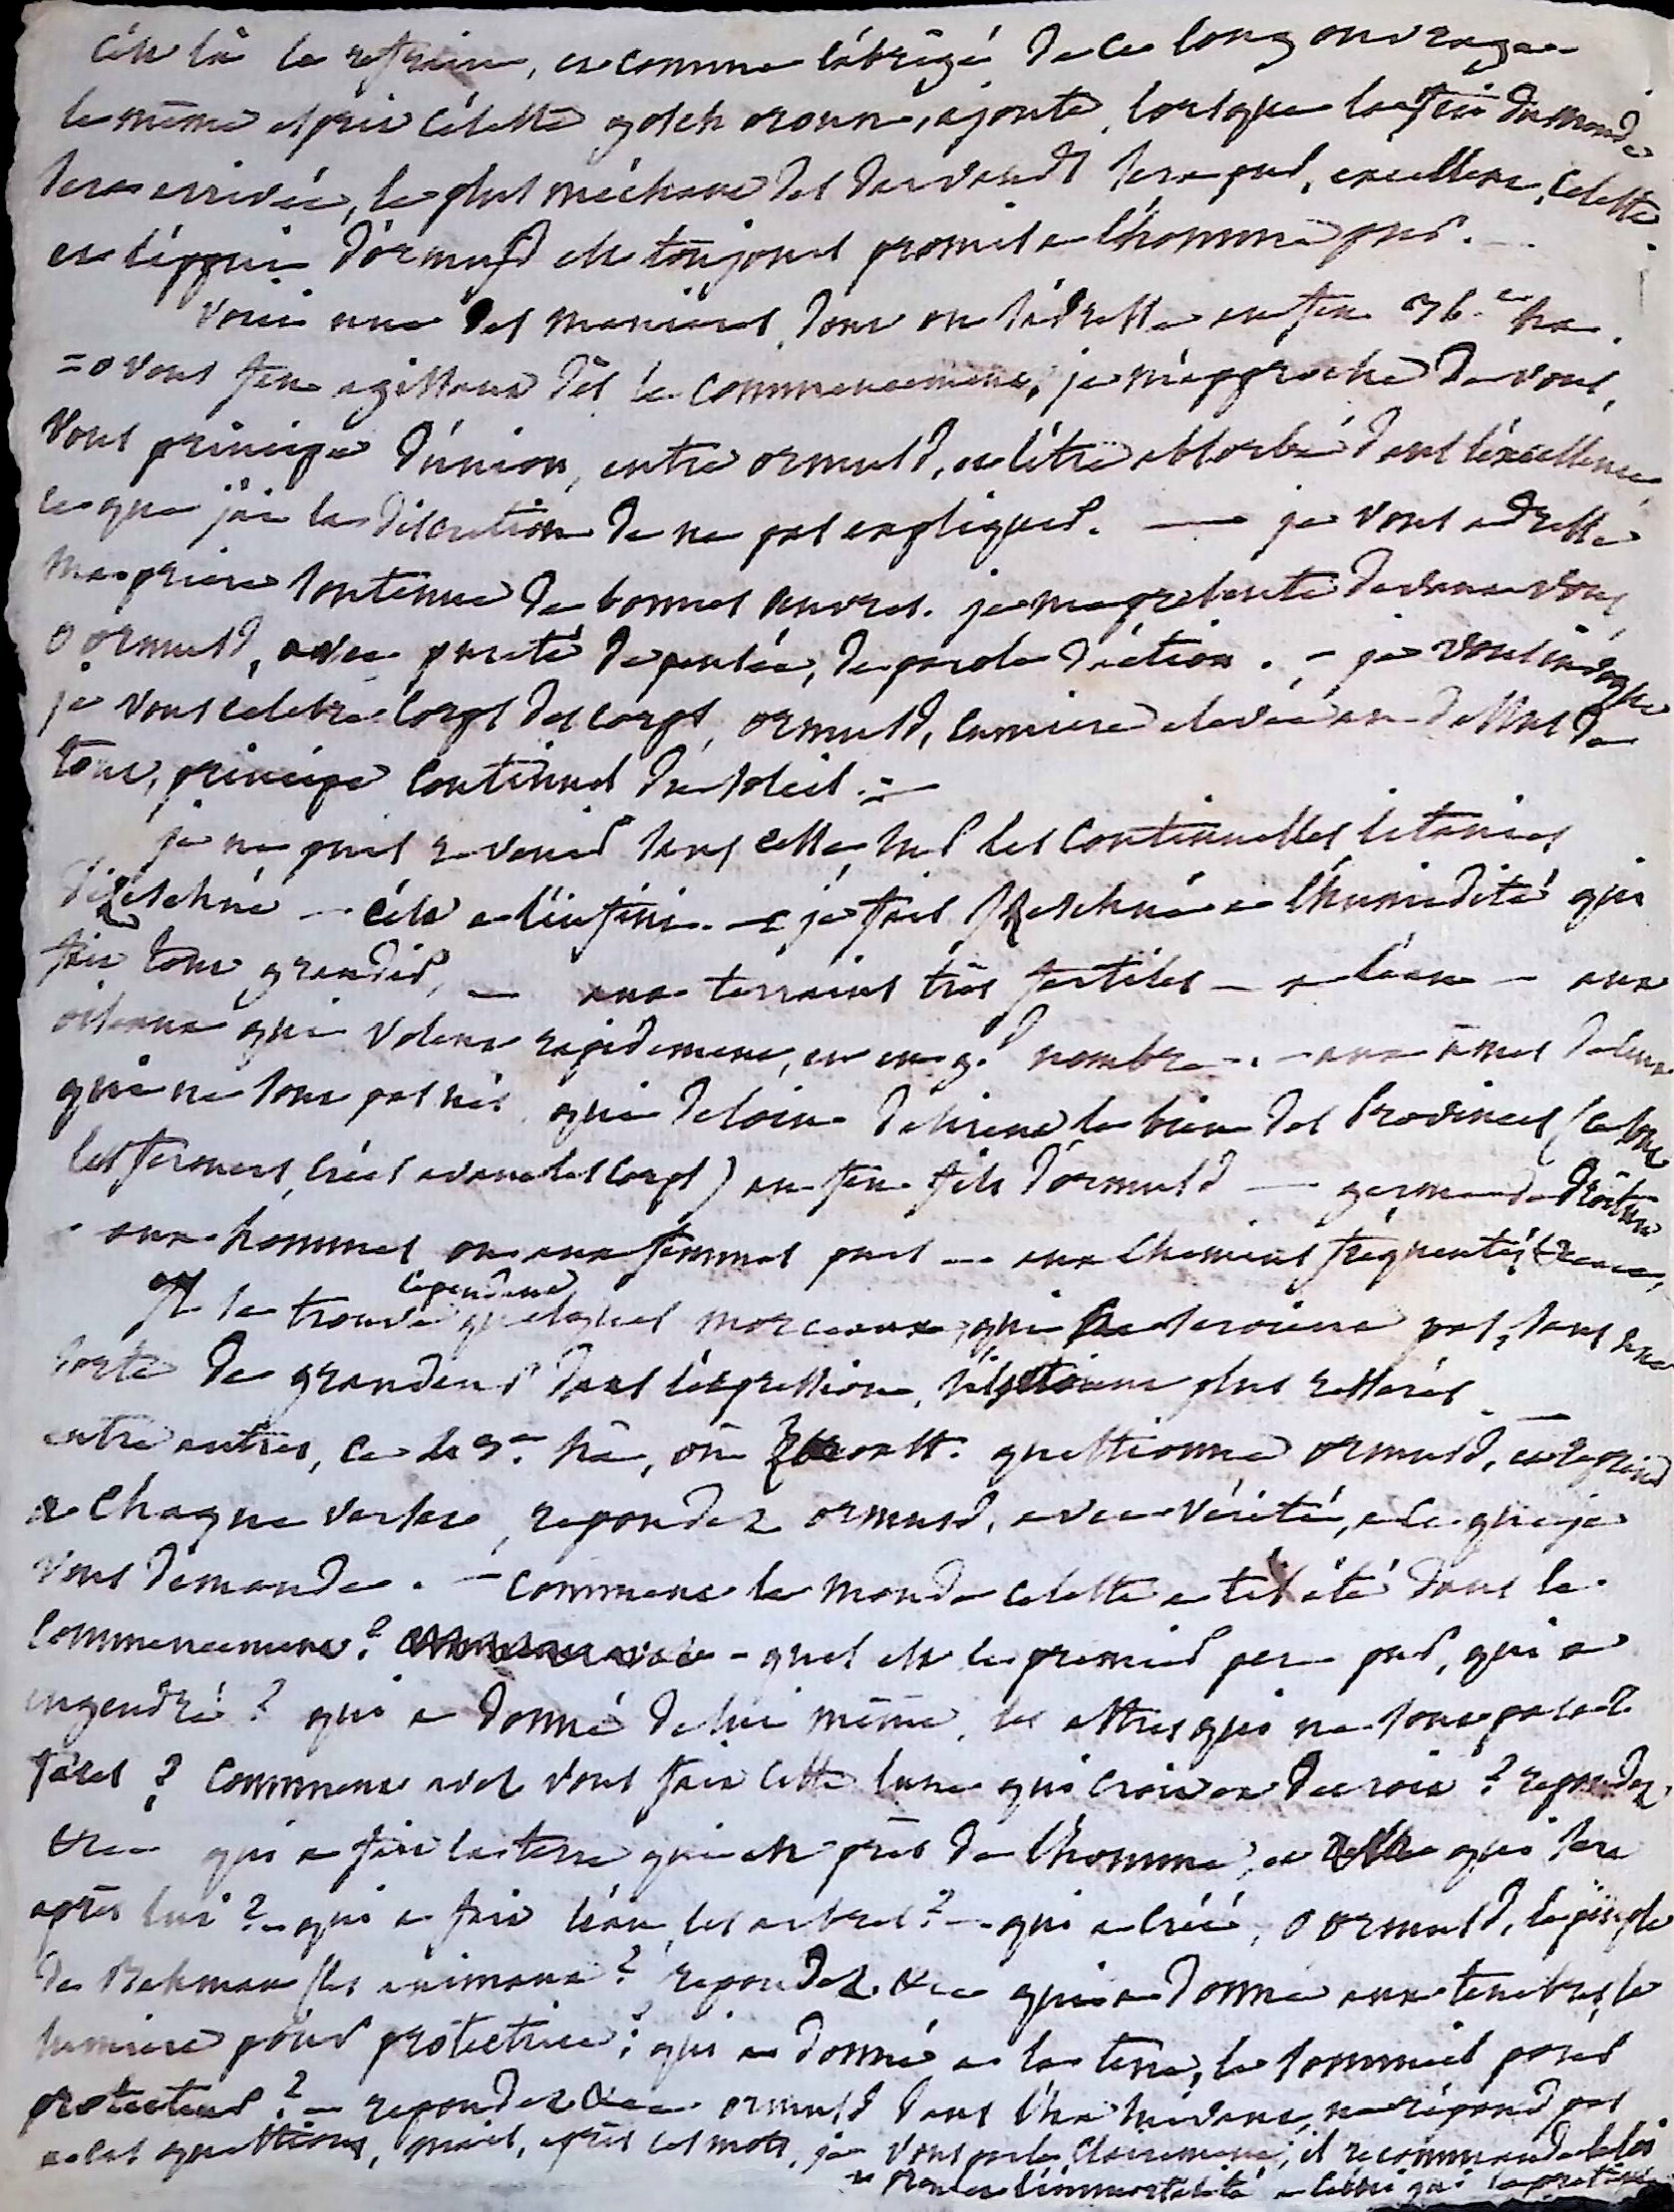 c'est là le refrain, et comme l'abrégé de ce long ouvrage
le même esprit céleste gosch oroun, ajoute, lorsque la fin du monde
sera arrivée, le plus méchant des darvands sera pur, excellent, celeste.
et l'appui d'ormusd est toujours promis a l'homme pur. —
voici une des manieres, dont on s'adresse au feu 36.e ha.
= o vous feu agissant dès le commencement, je m'approche de vous,
vous principe d'union, entre ormusd, et l'être absorbé dans l'excellence,
ce que j'ai la discretion de ne pas expliquer. — je vous adresse
ma priere soutenue de bonnes œuvres. je me presente devant vous,
o ormusd, avec pureté de pensée, de parole d'action. — je vous invoque
je vous celebre corps des corps, ormusd, lumiere elevée au dessus de
tout, principe continuel du soleil. —
je ne puis revenir sans cesse, sur les continuelles litanies
d'izeschné — c'est a l'infini. — je fais izeschné a l'humidité qui
fait tout grandir, — aux terrains très fertiles — a l'eau — aux
oiseaux qui volent rapidement, et en gd nombre — aux âmes de ceux
qui ne sont pas nés qui de loin desirent le bien des Provinces (ce sont
les ferouers, créés avant les corps) au feu fils d'ormusd — germe de droiture
aux hommes ou aux femmes purs — aux chemins fréquentés &c,
Il se trouve cependant quelques morceaux, qui ne seroient pas, sans une
sorte de grandeur dans l'expression, s'ils étoient plus resserrés
entre autres, ce ha, où zoroast. questionne ormusd, et reprend
a chaque verset, repondez ormusd, avec vérité, a ce que je
vous demande. — comment le monde celeste a t'il été dans le
commencement? — quel est le premier pere pur, qui a
engendré? qui a donné de lui même, les astres qui ne sont pas a 2
faces? comment avez vous fait cette lune qui croit et decroit? repondez
&c — qui a fait la terre qui est près de l'homme, et celle qui sera
après lui? — qui a fait l'eau, les arbres? — qui a créé, o ormusd, le peuple
de Bahman (les animaux? repondez &c — qui a donné aux tenebres, la
lumiere pour protectrice? qui a donné a la terre, le sommeil pour
protecteur? — repondez &c — ormusd dans l'ha suivant, ne répond pas
a ces questions, mais, après ces mots, je vous parle clairement, il recommande la loi
et promet l'immortalité a celui qui la pratique